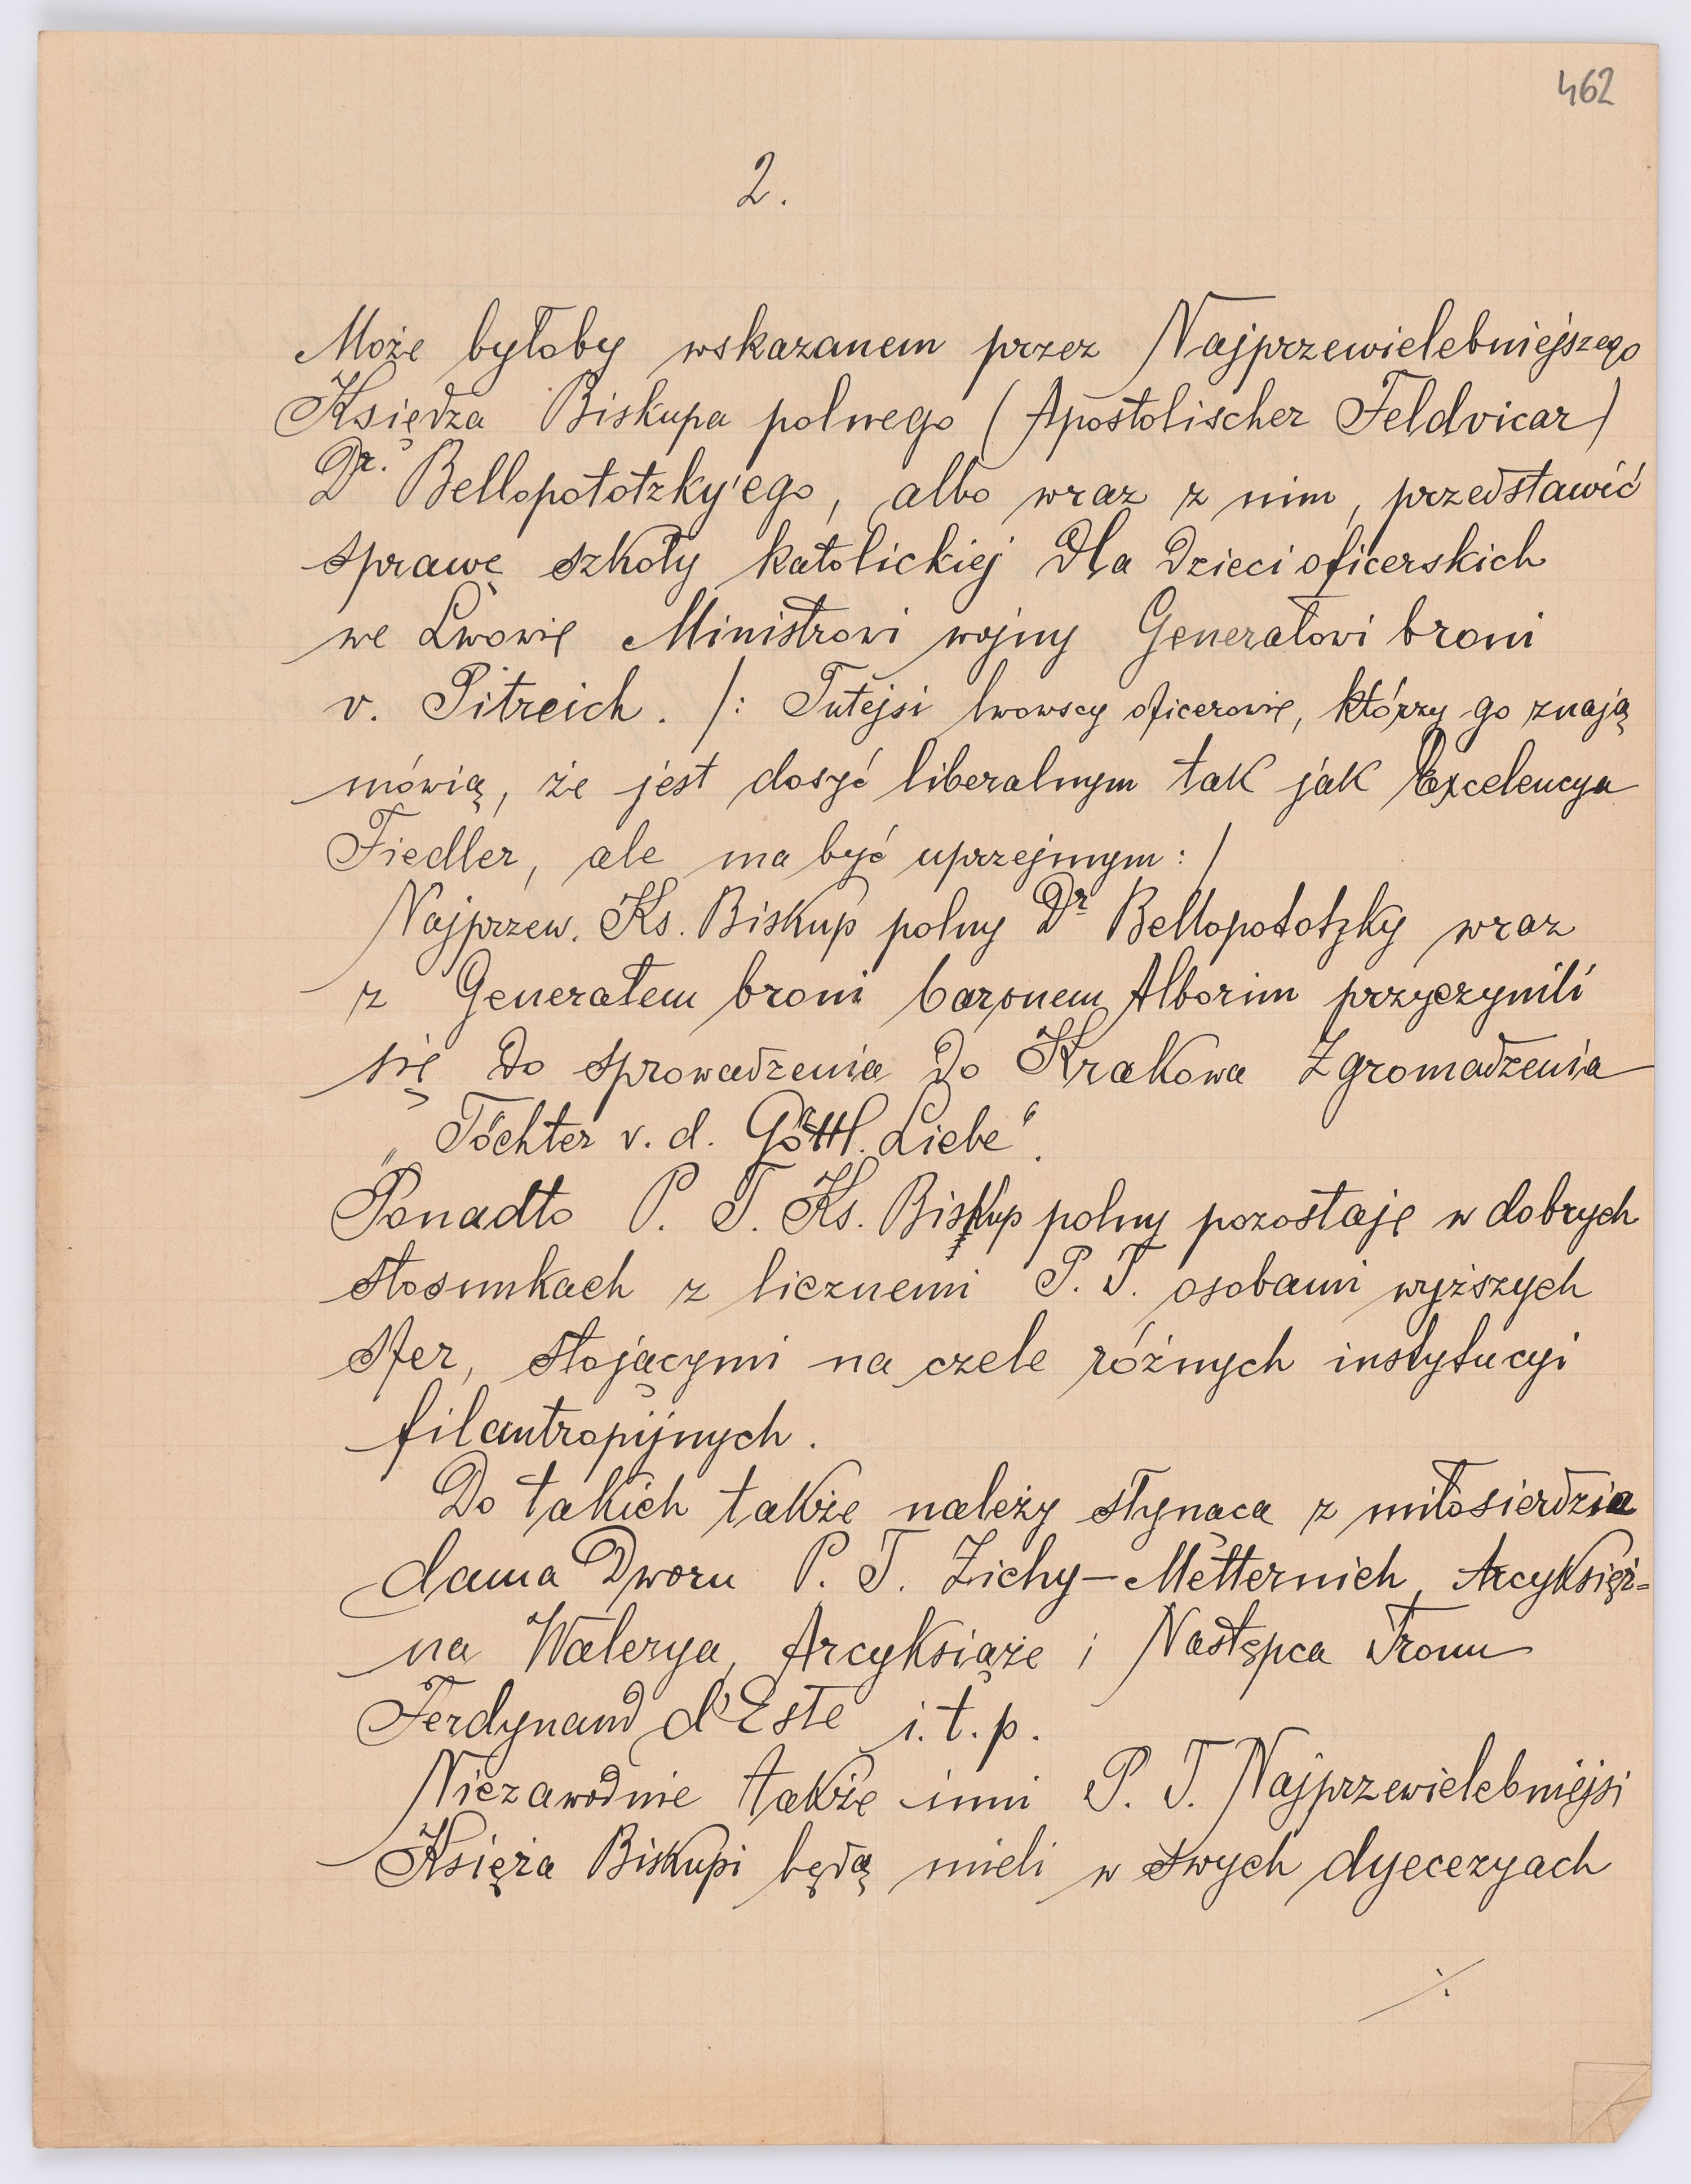 462
2.
Może byłoby wskazanem przez Najprzewielebniejszego
Księdza Biskupa polnego (Apostolischer Feldvicar)
Dr. Bellopototzky'ego, albo wraz z nim, przedstawić
sprawę szkoły katolickiej dla dzieci oficerskich
we Lwowie Ministrowi wojny Generałowi broni
v. Pitreich. /: Tutejsi lwowscy oficerowie, którzy go znają
mówią, że jest dosyć liberalnym tak jak Excelencya
Fiedler, ale ma być uprzejmym :/
Najprzew. Ks. Biskup polny Dr Bellopototzky wraz
z Generałem broni baronem Alborim przyczynili
się do sprowadzenia do Krakowa Zgromadzenia
„Töchter v. d. Göttl. Liebe“.
Ponadto P. T. Ks. Biskup polny pozostaje w dobrych
stosunkach z licznemi P. T. osobami wyższych
sfer, stojącymi na czele różnych instytucyi
filantropijnych.
Do takich także należy słynąca z miłosierdzia
dama Dworu P. T. Zichy-Metternich, Arcyksięż=
na Walerya, Arcyksiąże i Następca Tronu
Ferdynand d'Este i. t. p.
Niezawodnie także inni P. T. Najprzewielebniejsi
Księża Biskupi będą mieli w swych dyecezyach
./.